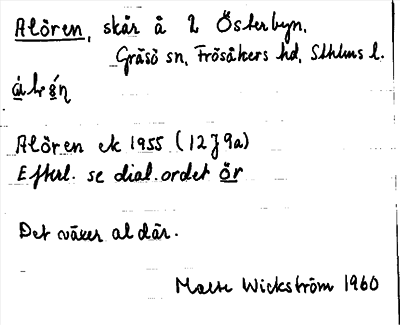 Alören, skär å 2 Österbyn,
Gräsö sn, Frösåkers hd, Sthlms l.
Alören ek 1955 (12J 9a)
Efterl. se dial. ordet ör
Det växer al där.
Malte Wickström 1960